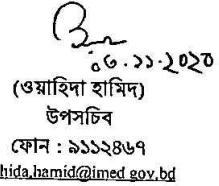 ০৫.১১.২০২০
(ওয়াহিদা হামিদ)
উপসচিব
ফোন : ৯১১২৪৬৭
hida.hamid@imed.gov.bd